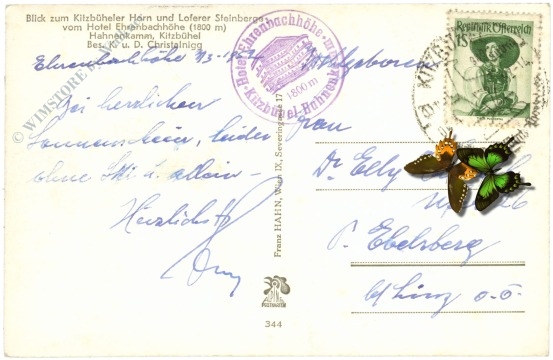 Blick zum Kitzbüheler Horn und Loferer Steinberge
vom Hotel Ehrenbachhöhe (1800 m)
Hahnenkamm, Kitzbühel
Bes. A. u. D. Christalnigg
© WIMSTORE
Hotel Ehrenbachhöhe
1800 m
Kitzbühel-Hahnenk
Republik Österreich
KITZB
Ehrenbachhöhe
Bei herrlichem
Sonnenschein, leider
ohne Ski u. allein -
Herzlichst
Franz HAHN, Wien IX, Severingasse 17
344
Frau
Dr. Elly
P. Ebelsberg
b/ Linz o.ö.